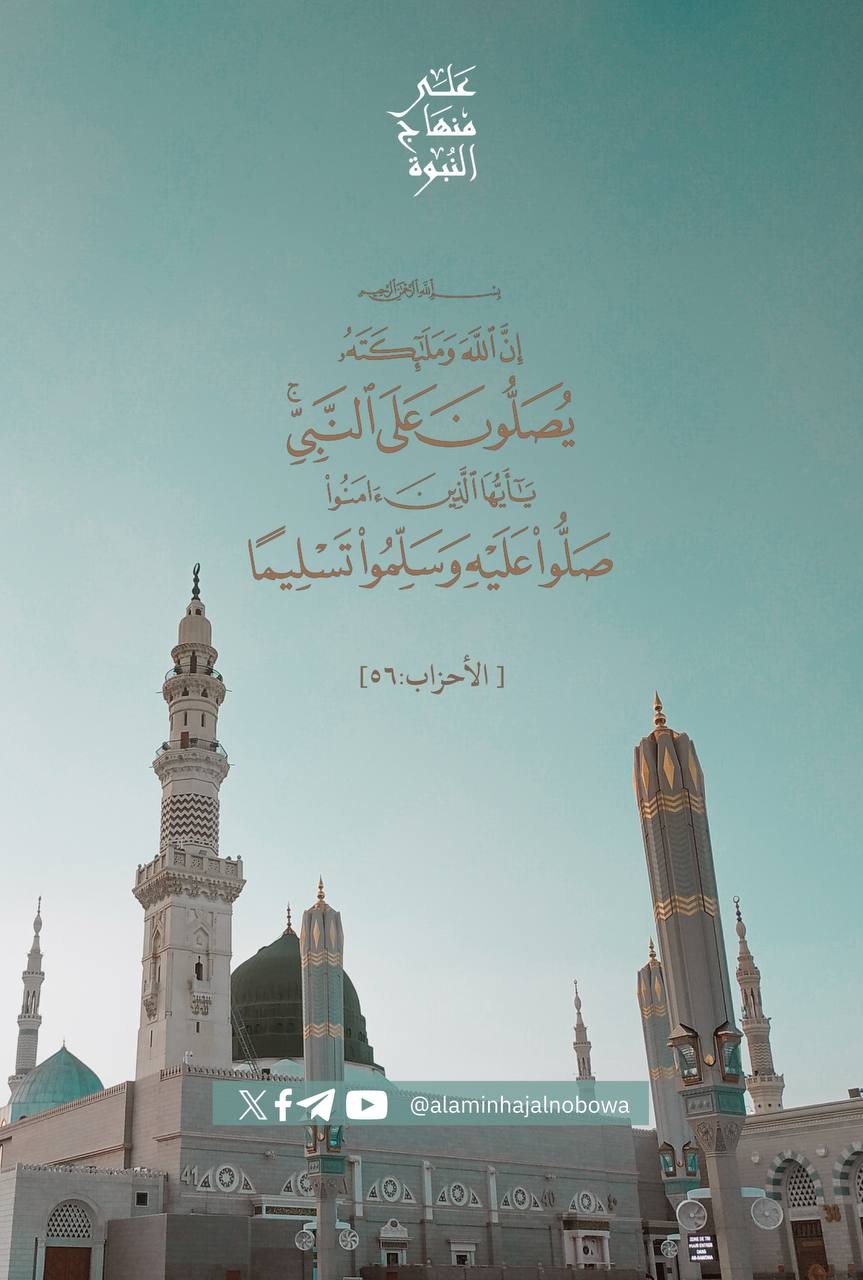 على
منهاج
النبوة
بِسْمِ اللَّهِ الرَّحْمَٰنِ الرَّحِيمِ
إِنَّ ٱللَّهَ وَمَلَٰٓئِكَتَهُۥ
يُصَلُّونَ عَلَى ٱلنَّبِيِّۚ
يَٰٓأَيُّهَا ٱلَّذِينَ ءَامَنُوا۟
صَلُّوا۟ عَلَيْهِ وَسَلِّمُوا۟ تَسْلِيمًا
[الأحزاب:٥٦]
@alaminhajalnobowa
41
40